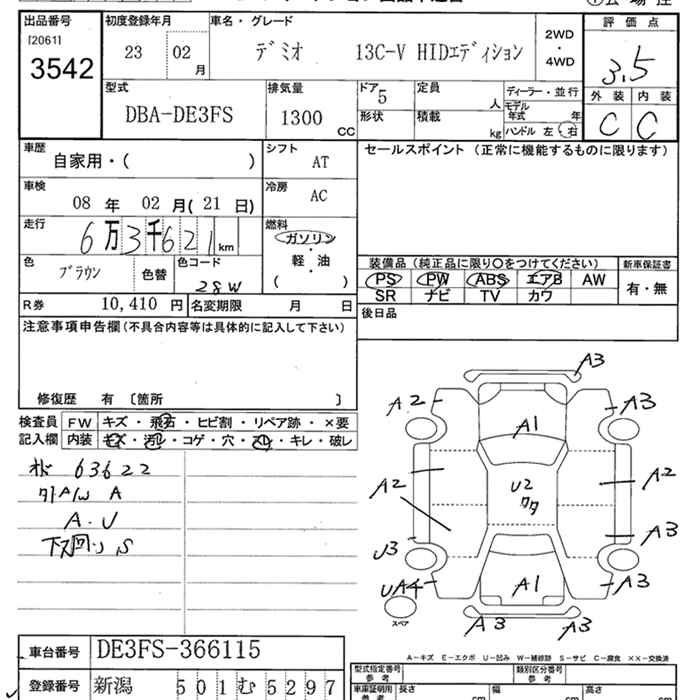 出品番号
[2061]
3542
初度登録年月
23 02月
車名・グレード
デミオ 13C-V HIDエディション
2WD
・
4WD
評価点
3.5
外装 内装
C C
型式
DBA-DE3FS
排気量
1300 CC
ドア 5
形状
定員 人
積載 kg
ディーラー・並行
モデル年式 年
ハンドル 左・右
車歴
自家用・( )
シフト
AT
セールスポイント (正常に機能するものに限ります)
車検
08 年 02 月(21 日)
冷房
AC
走行
6万3千621km
燃料
ガソリン
・
軽・油
・
( )
色
ブラウン
色替
色コード
28W
装備品 (純正品に限り〇をつけてください)
PS PW ABS エアB AW
SR ナビ TV カワ
新車保証書
有・無
R券 10,410 円
名変期限 月 日
後日品
注意事項申告欄(不具合内容等は具体的に記入して下さい)
修復歴 有 〔箇所 〕
検査員記入欄
FW キズ・飛石・ヒビ割・リペア跡・×要
内装 キズ・汚レ・コゲ・穴・スレ・キレ・破レ
63622
A/W A
A・U
下回り S
A3
A2
A1
A3
A2
U2
A2
A3
U3
UA4
A1
A3
A3
A3
スペア
A-キズ E-エクボ U-凹み W-補修跡 S-サビ C-腐食 ××-交換済
車台番号 DE3FS-366115
登録番号 新潟 501む5297
型式指定番号
参考
類別区分番号
参考
車庫証明用
参考
長さ cm
幅 cm
高さ cm